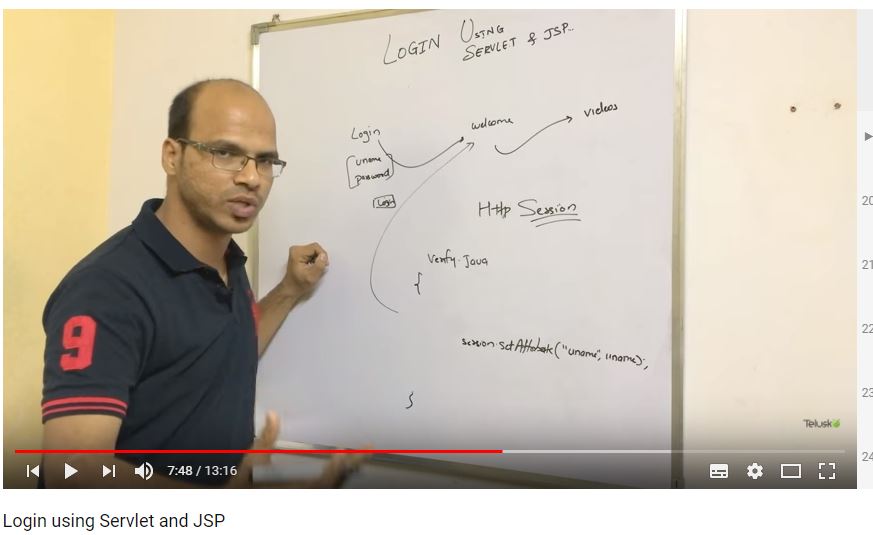 LOGIN USING
SERVLET & JSP..
Login
welcome
videos
uname
password
Login
Http Session
Verify.Java
{
session.setAttribute("uname", uname);
}
9
Telusko
7:48 / 13:16
20
21
22
23
24
Login using Servlet and JSP